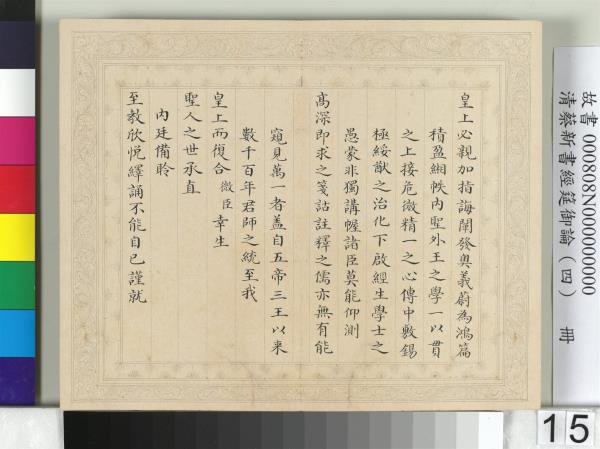 皇上必親加指誨闡發奧義蔚為鴻篇
積盈緗帙內聖外王之學一以貫
之上接危微精一之心傳中敷錫
極綏猷之治化下啟經生學士之
愚蒙非獨講幄諸臣莫能仰測
高深即求之箋詁註釋之儒亦無有能
窺見萬一者蓋自五帝三王以来
數千百年君師之統至我
皇上而復合微臣幸生
聖人之世承直
內廷備聆
至教欣悅繹誦不能自已謹就
故書 000808N000000000
清蔡新書經筵御論（四） 冊
15